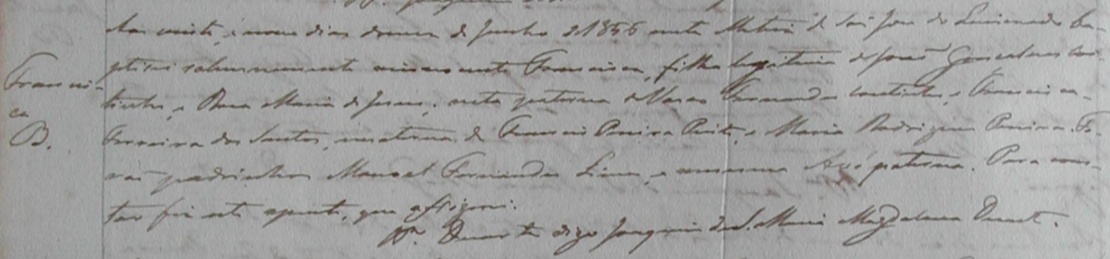 Aos vinte, e nove dias do mes de Junho de 1856 nesta Matriz de São José do Limoeiro ba-
ptisei solemnemente a innocente Francisca, filha legitima de João Gonçalves Cou-
tinho, e Anna Maria de Jesus, neta paterna de Fernandes Coutinho, e Francisca
Ferreira dos Santos, e materna de Francisco Pereira Pinto, e Maria Rodrigues Pereira. Fo-
rão padrinhos Manoel Fernandes Lima, e a mesma Avó paterna. Para cons-
tar fiz este assento, que assignei.
Duarte digo Joaquim de S. Maria Magdalena Duarte.
Francis-
ca
B.